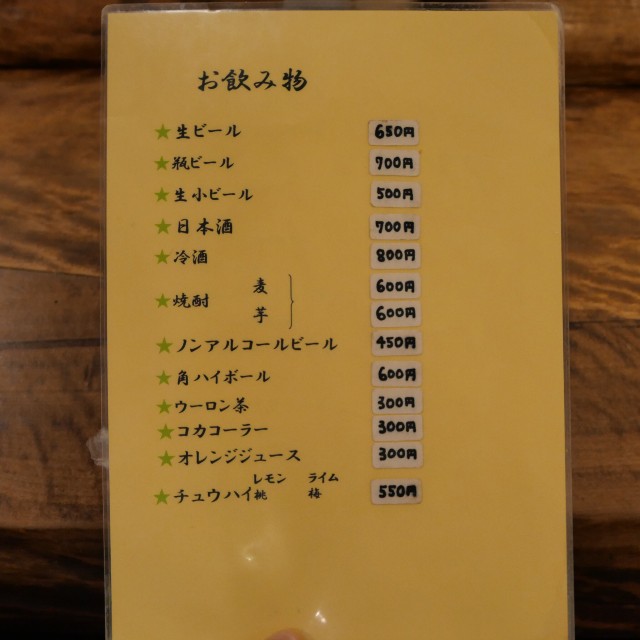 お飲み物
★生ビール 650円
★瓶ビール 700円
★生小ビール 500円
★日本酒 700円
★冷酒 800円
★焼酎 麦 600円
芋 600円
★ノンアルコールビール 450円
★角ハイボール 600円
★ウーロン茶 300円
★コカコーラー 300円
★オレンジジュース 300円
レモン ライム
★チュウハイ 桃 梅 550円